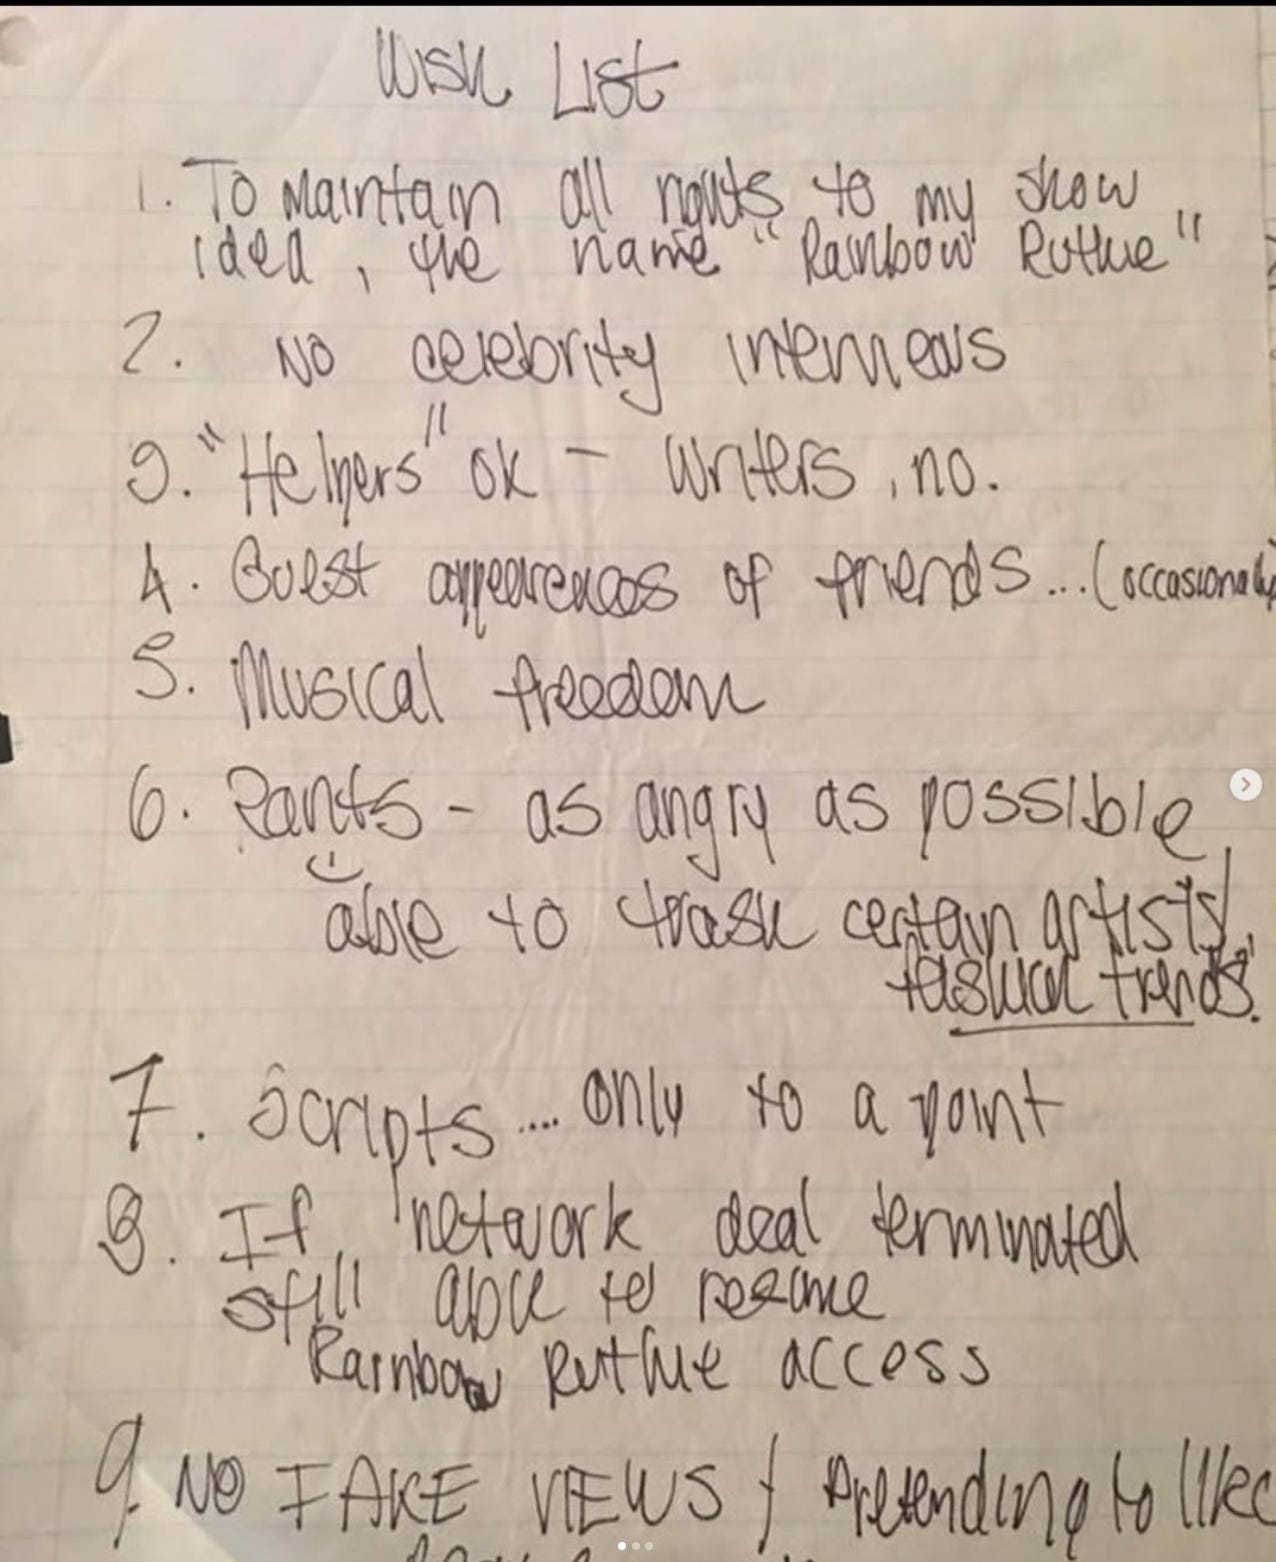 Wish List
1. To Maintain all rights to my show
idea, the name "Rainbow Ruthie"
2. NO celebrity interviews
3. "Helpers" ok - writers, no.
4. Guest appearences of friends...(occasionally)
5. Musical freedom
6. Rants - as angry as possible
able to trash certain artists/
fashion trends.
7. Scripts.... only to a point
8. If network deal terminated
still able to resume
Rainbow Ruthie access
9. NO FAKE VIEWS / Pretending to like